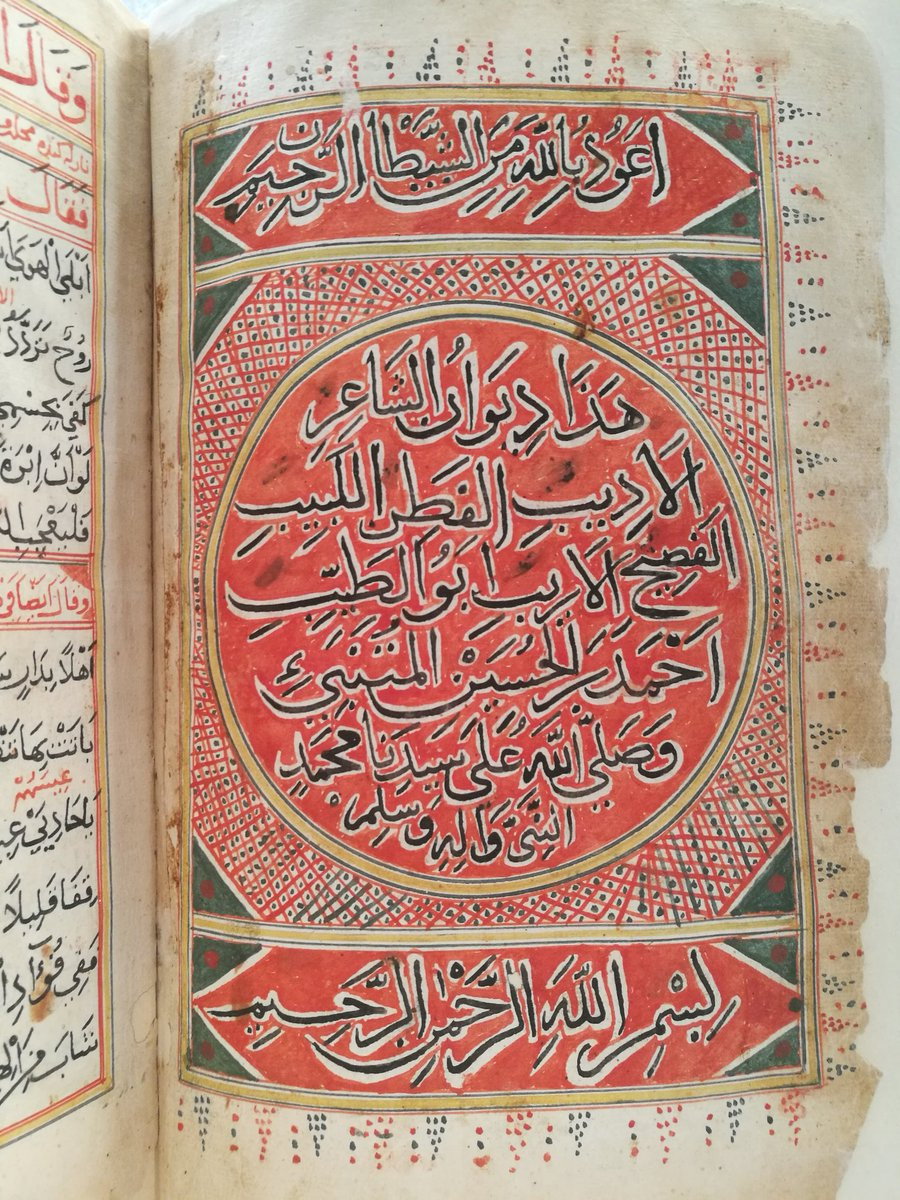 اَعُوذُ بِاللهِ مِنَ الشَّيْطَانِ الرَّجِيمِ
هَذَا دِيوَانُ الشَّاعِرِ
الاَدِيبِ الفَطِنِ اللَّبِيبِ
الفَصِيحِ الاَرِيبِ ابُو الطَّيِّبِ
اَحْمَد بن الحُسَيْنِ المُتَنَبِّئ
وَصَلَّى اللهُ عَلَى سَيِّدِنَا مُحَمَّدٍ
النَّبِيِّ وَالِهِ وَسَلَّم
بِسْمِ اللهِ الرَّحْمٰنِ الرَّحِيمِ
وَقَالَ
فَقَالَ
رُوحٌ تَرَدَّدُ
لَوْ اَنَّ اِبْرَةَ
وقال ايضا في
اَهْلاً بِدَارٍ
بَانَتْ بِهَا
يَا حَادِيَيْ
قِفَا قَلِيلاً
فَفِي فُؤَادِ
شَابَ مِنَ